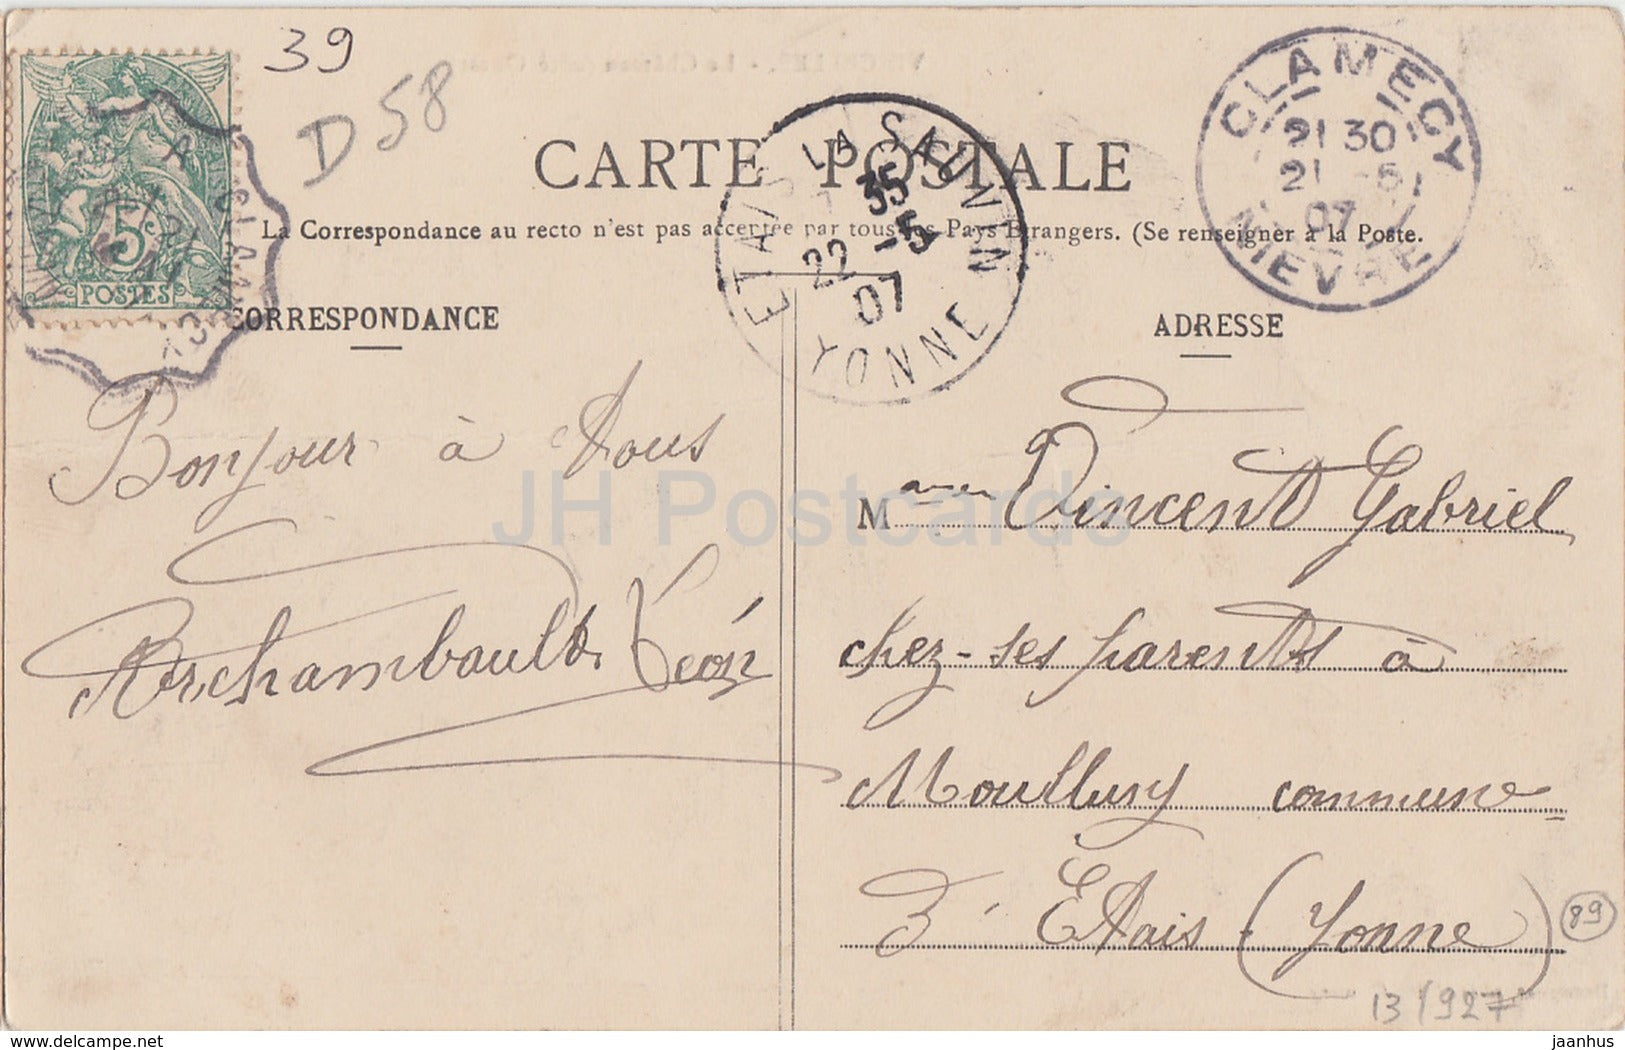 39
D 58
CARTE POSTALE
La Correspondance au recto n'est pas acceptée par tous les Pays Etrangers. (Se renseigner à la Poste.
5
POSTES
ETAIS LA SAUVIN
35
22 -5
07
YONNE
CLAMECY
21 30
21 -5
07
NIEVRE
CORRESPONDANCE
ADRESSE
Bonjour à tous
Archambault Léon
M Vincent Gabriel
chez-ses parents à
Moulluny commune
D'Etais (Yonne)
89
13/927
JH Postcards
delcampe.net
jaanhus